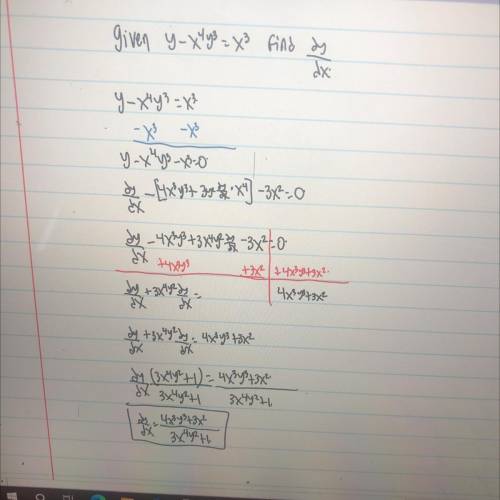 given y - x⁴y³ = x³ find dy/dx
y - x⁴y³ = x³
- x³ - x³
y - x⁴y³ - x³ = 0
dy/dx - [4x³y³ + 3y² dy/dx · x⁴] - 3x² = 0
dy/dx - 4x³y³ + 3x⁴y² dy/dx - 3x² = 0
+4x³y³ +3x² +4x³y³+3x²
dy/dx + 3x⁴y² dy/dx = 4x³y³+3x²
dy/dx + 3x⁴y² dy/dx = 4x³y³+3x²
dy/dx (3x⁴y²+1) = 4x³y³+3x²
3x⁴y²+1 3x⁴y²+1
dy/dx = 4x³y³+3x² / 3x⁴y²+1